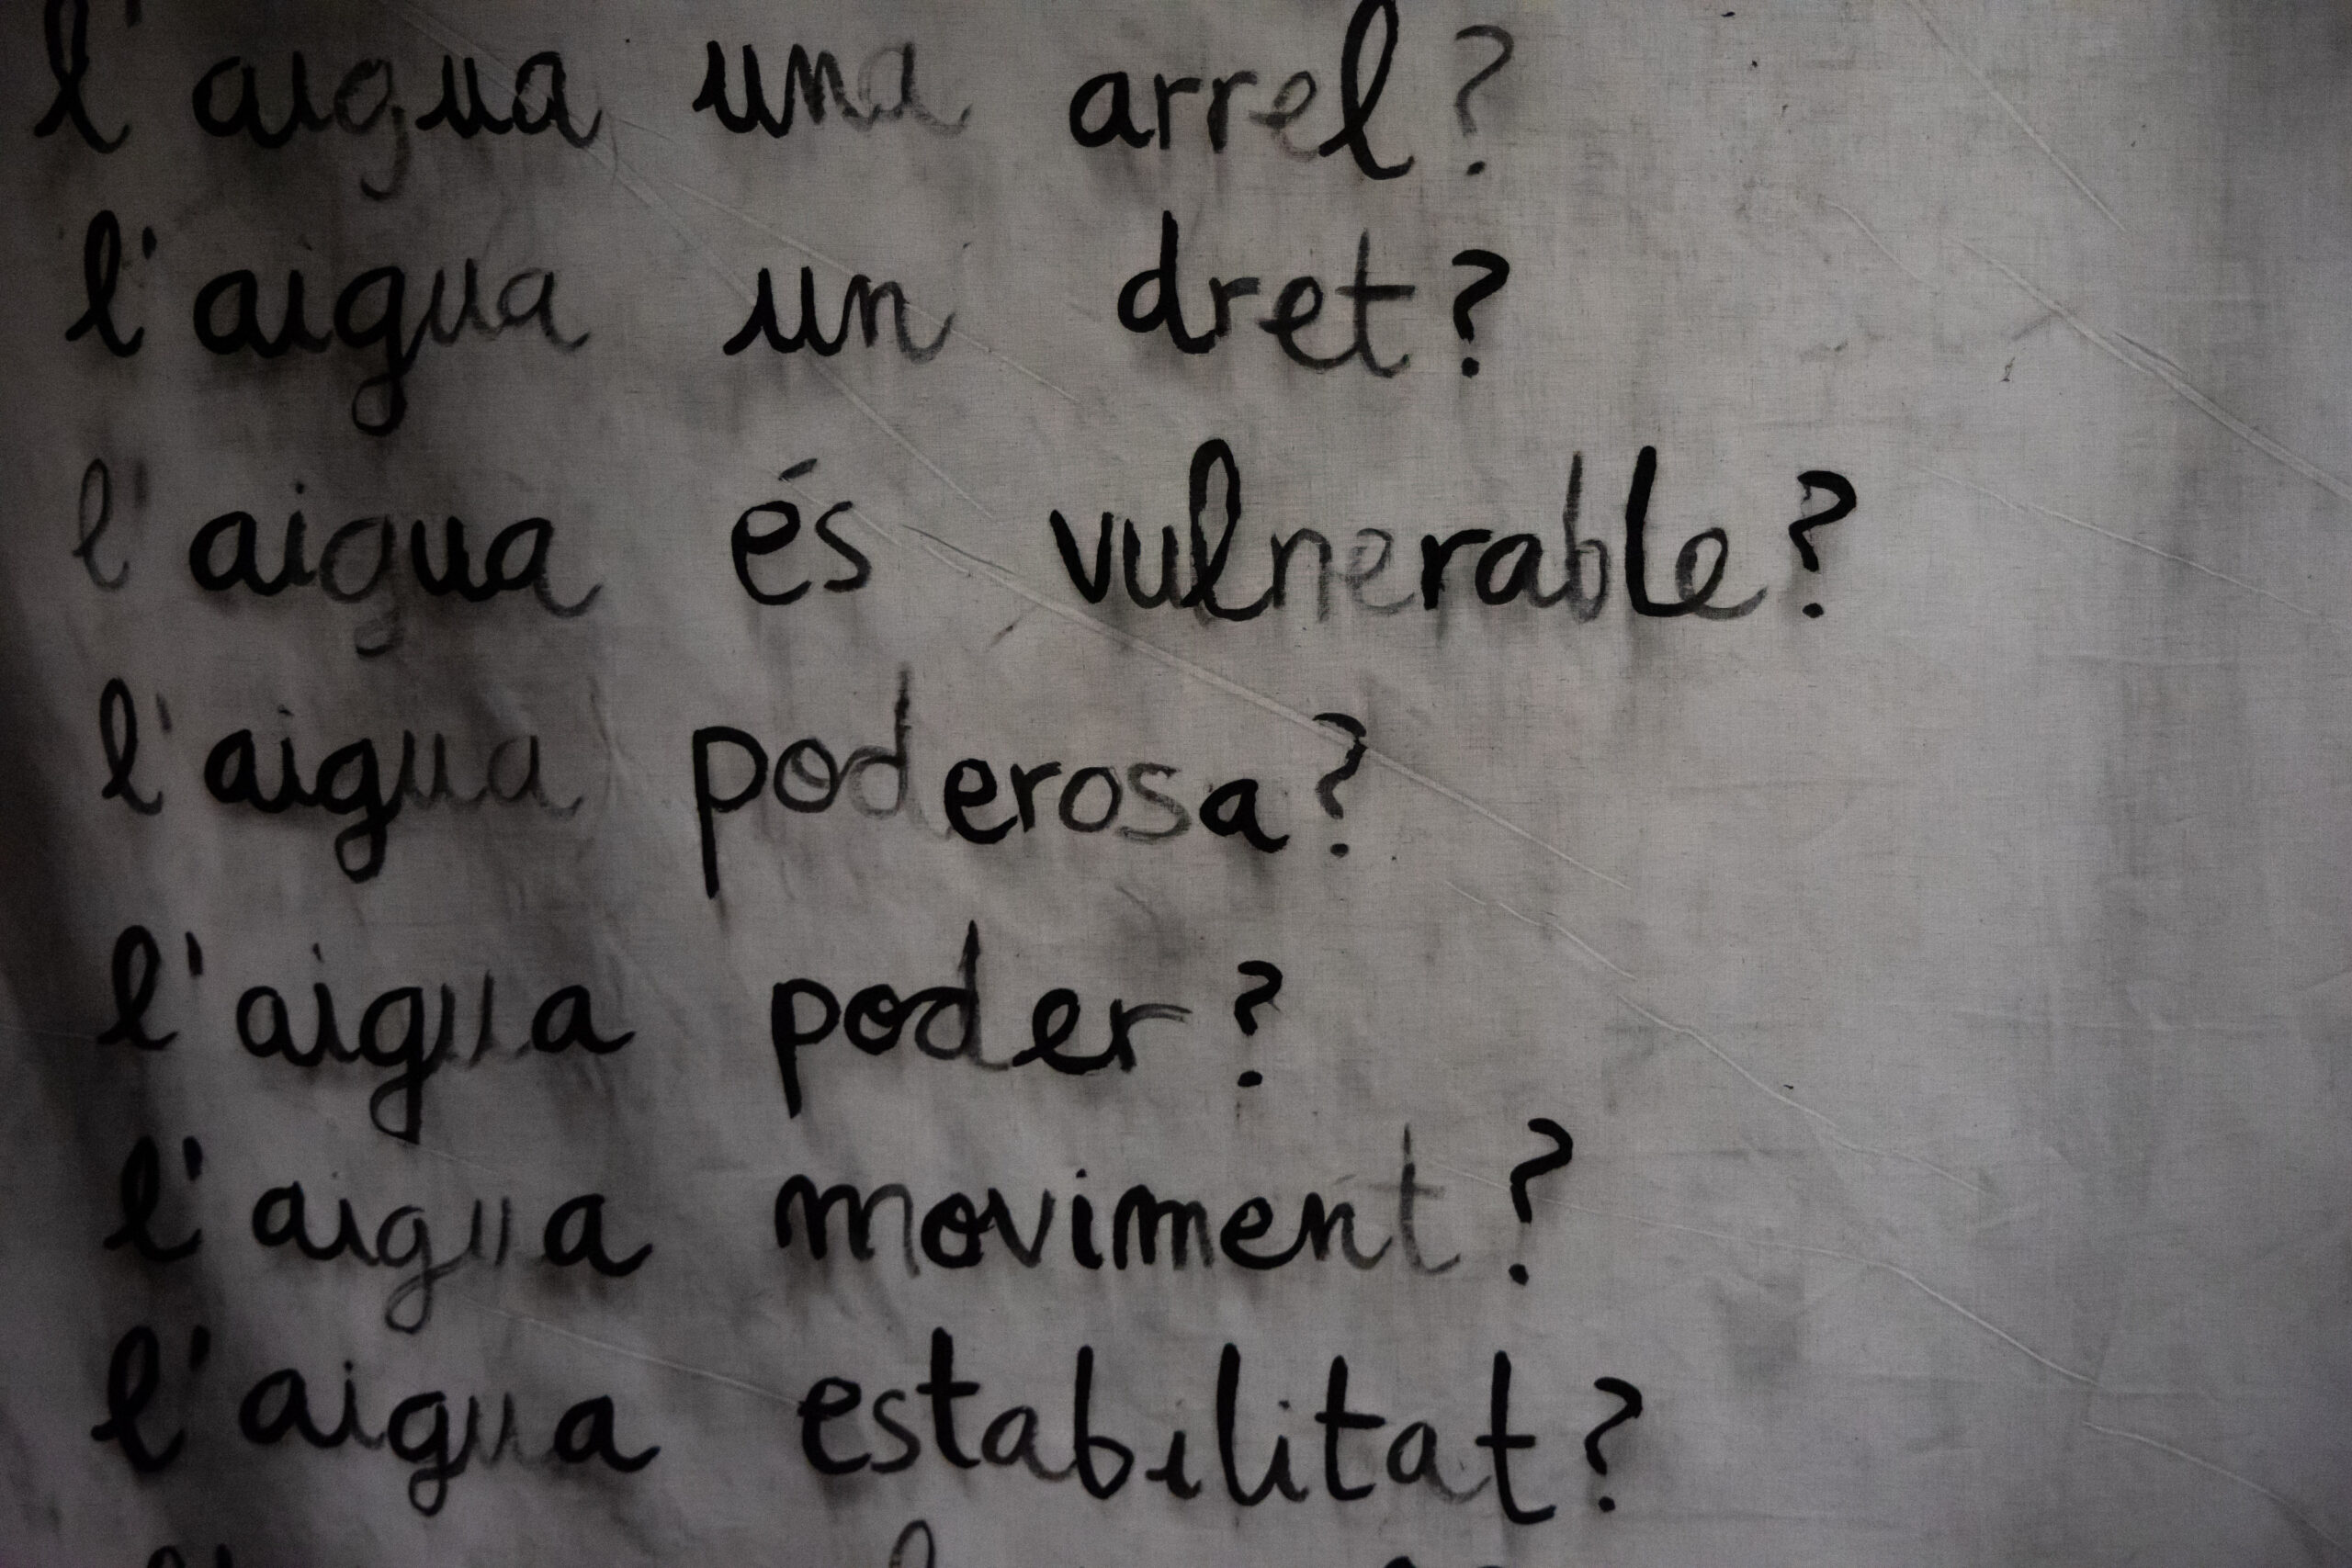 l'aigua una arrel?
l'aigua un dret?
l'aigua és vulnerable?
l'aigua poderosa?
l'aigua poder?
l'aigua moviment?
l'aigua estabilitat?